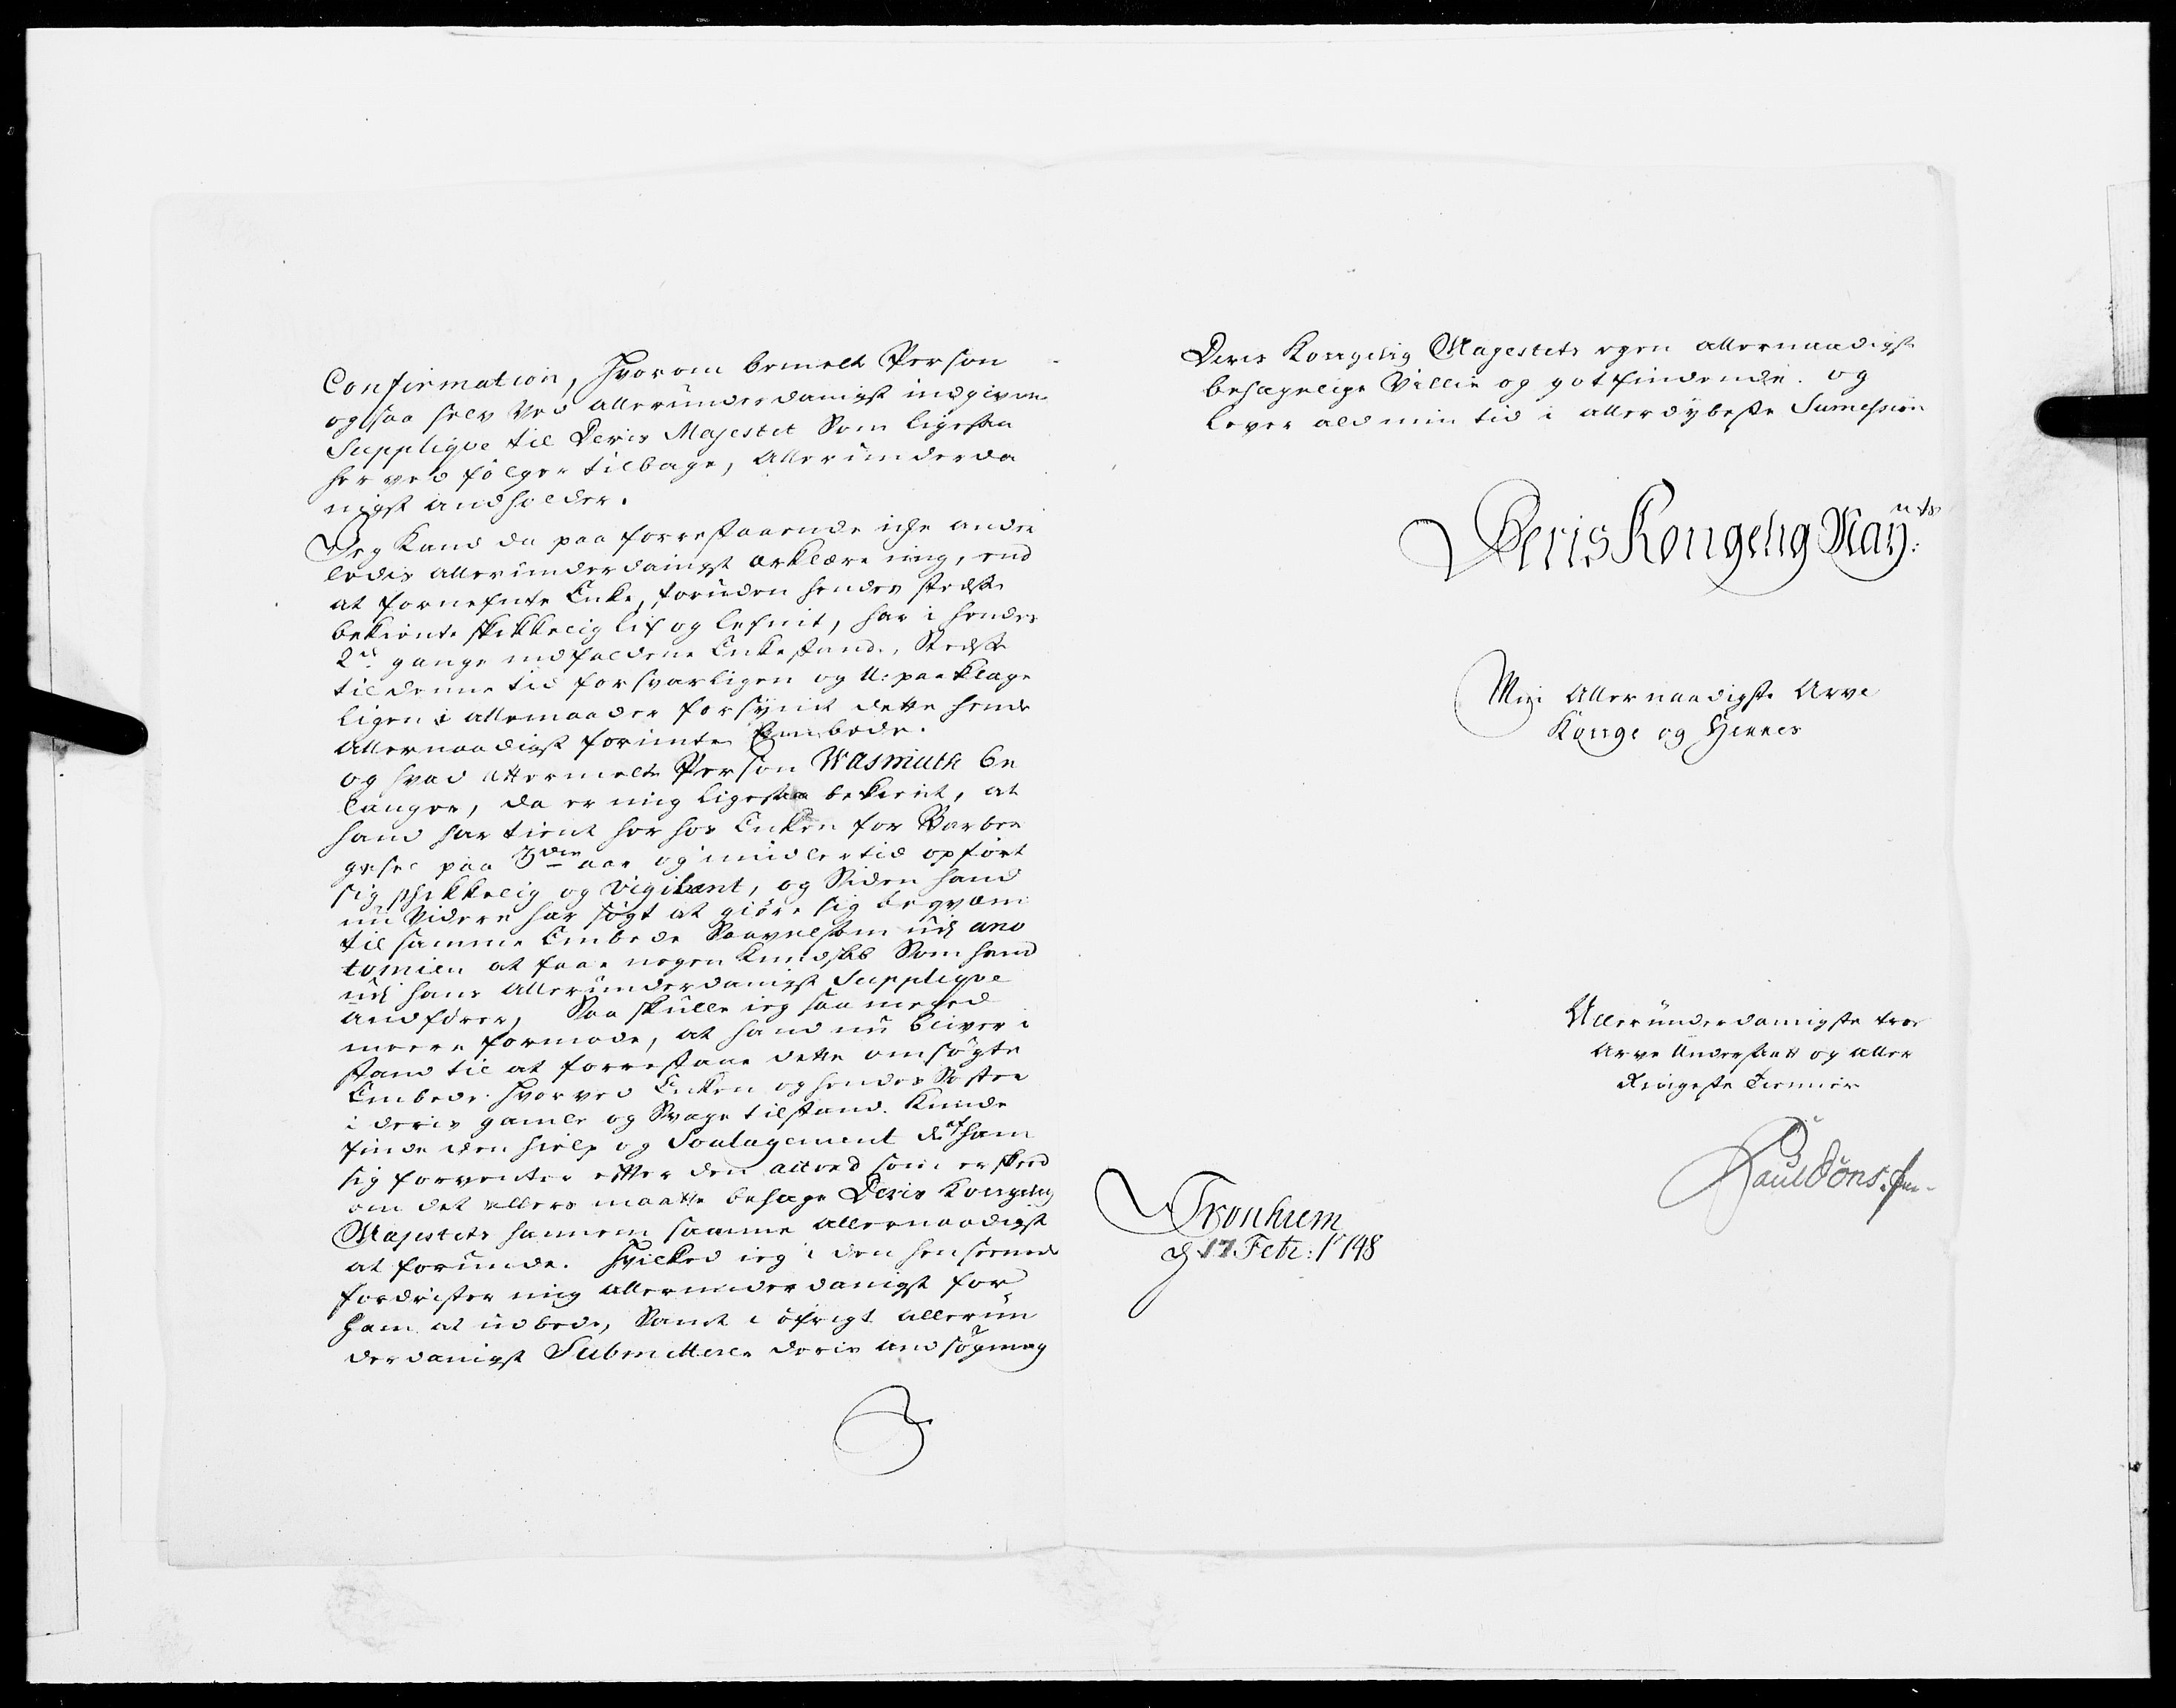 Confirmation, hvorom bemelte Person
ogsaa selv Ved allerunderdanigst indgivne
Supplique til Deris Majestet Som ligesaa
her ved følger tilbage, Allerunderda
nigst andholder.
Jeg kand da paa forrestaaende iche andre
ledis allerunderdanigst erklære mig, end
at fornefnte Enke, foruden hendes stedse
bekiente skikkelig lif og lefnit, har i hendes
2de gange indfaldene Enkestand, Stedse
til denne tid forsvarligen og U:paaklage
ligen i allemaader forsynit dette hende
allernaadigst forunte Embede.
og hvad attermelte Person Wasmuth be
langer, da er mig ligesaa bekient, at
hand har tient her hos Enken for Barber
gesel paa 3die aar og imidlertid opført
sig skikkelig og vigilant, og Siden hand
nu Videre har søgt at giøre sig beqvæm
til samme Embede Saavelsom udj ano
tomien at faae nogen kundskb Som hand
udj hans Allerunderdanigst Supplique
andfører, Saa skulle ieg saa meged
meere formode, at hand nu bliver i
stand til at forrestaae dette omsøgte
Embede hvorved Enken og hendes Søster
i deris gamle og Svage tilstand kunde
finde den hielp og Soulagement de af ham
sig forventer efter den accord som er skeed
om det ellers maatte behage Deris Kongelig
Majestets hannem saamme allernaadigst
at forunde. Hvilked ieg i den henseende
fordrister mig allerunderdanigst for
ham at udbede, Samt i øfrigt allerun
derdanigst Submitterer deris andsøgning
Deris Kongelig Magestets egen allernaadigste
behagelige Villie og gotfindende. og
lever ald min tid i allerdybeste Sumession
Deris Kongelig May:ts
Min Allernaadigste Arve
Konge og Herres
Allerunderdanigste troe
Arve Undersaatt og aller
Ringeste Tienner
Paul Döns.
Tronhiem
d 17 Febr: 1748